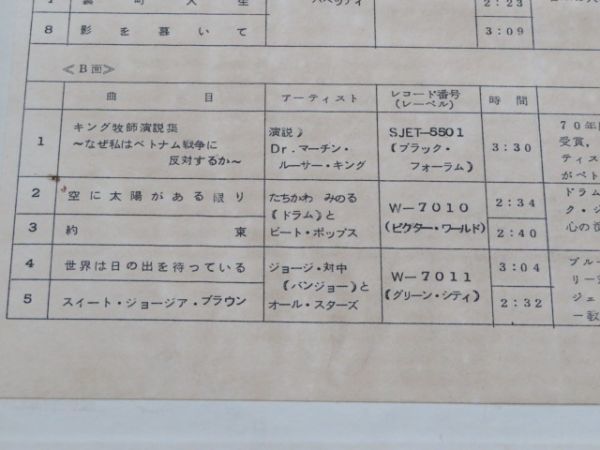 2:23
8 影を慕いて 3:09
≪B面≫
曲目 アーティスト レコード番号(レーベル) 時間
1 キング牧師演説集 演説) SJET-5501 3:30 70年
〜なぜ私はベトナム戦争に Dr.マーチン・ (ブラック・ 受賞,
反対するか〜 ルーサー・キング フォーラム) ティス
がベト
2 空に太陽がある限り たちかわ みのる W-7010 2:34 ドラム
《ドラム》と (ビクター・ワールド) ク・ジ
3 約束 ビート・ポップス 2:40 心の
4 世界は日の出を待っている ジョージ・対中 W-7011 3:04 ブルー
《バンジョー》と (グリーン・シティ) リー
5 スイート・ジョージア・ブラウン オール・スターズ 2:32 ジェ
一歌